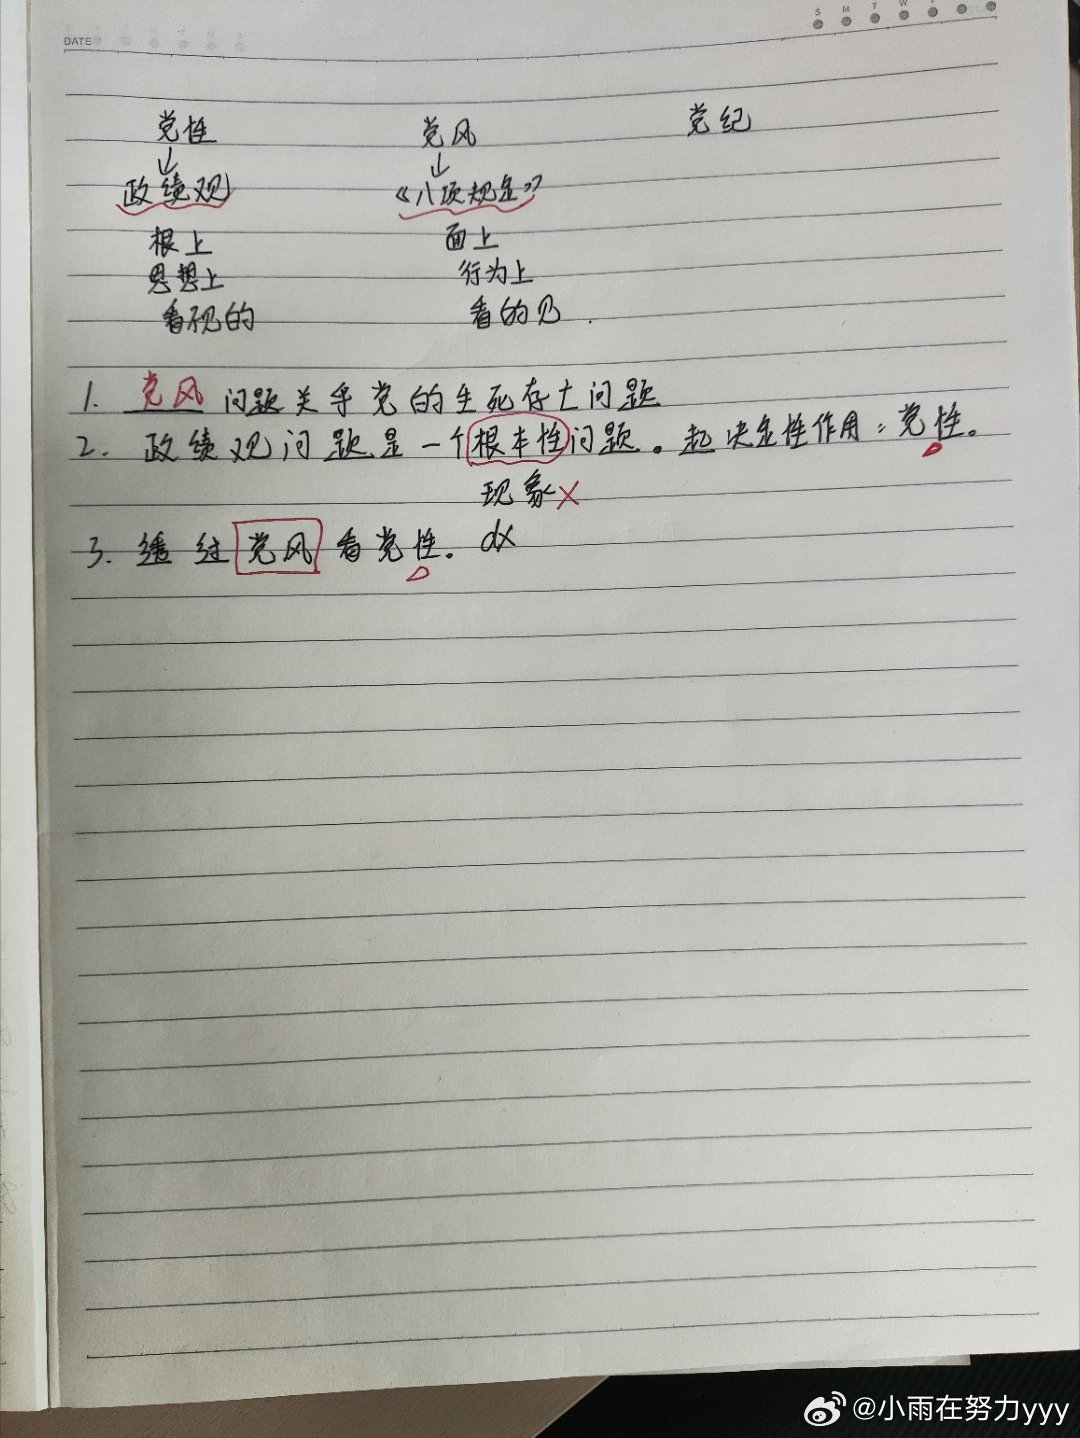 S M T W
DATE
党性 党风 党纪
↓ ↓
政绩观 《八项规定》
根上 面上
思想上 行为上
看不见的 看的见.
1. 党风问题关乎党的生死存亡问题
2. 政绩观问题是一个根本性问题。起决定性作用:党性。
现象×
3. 透过党风看党性。dx
@小雨在努力yyy